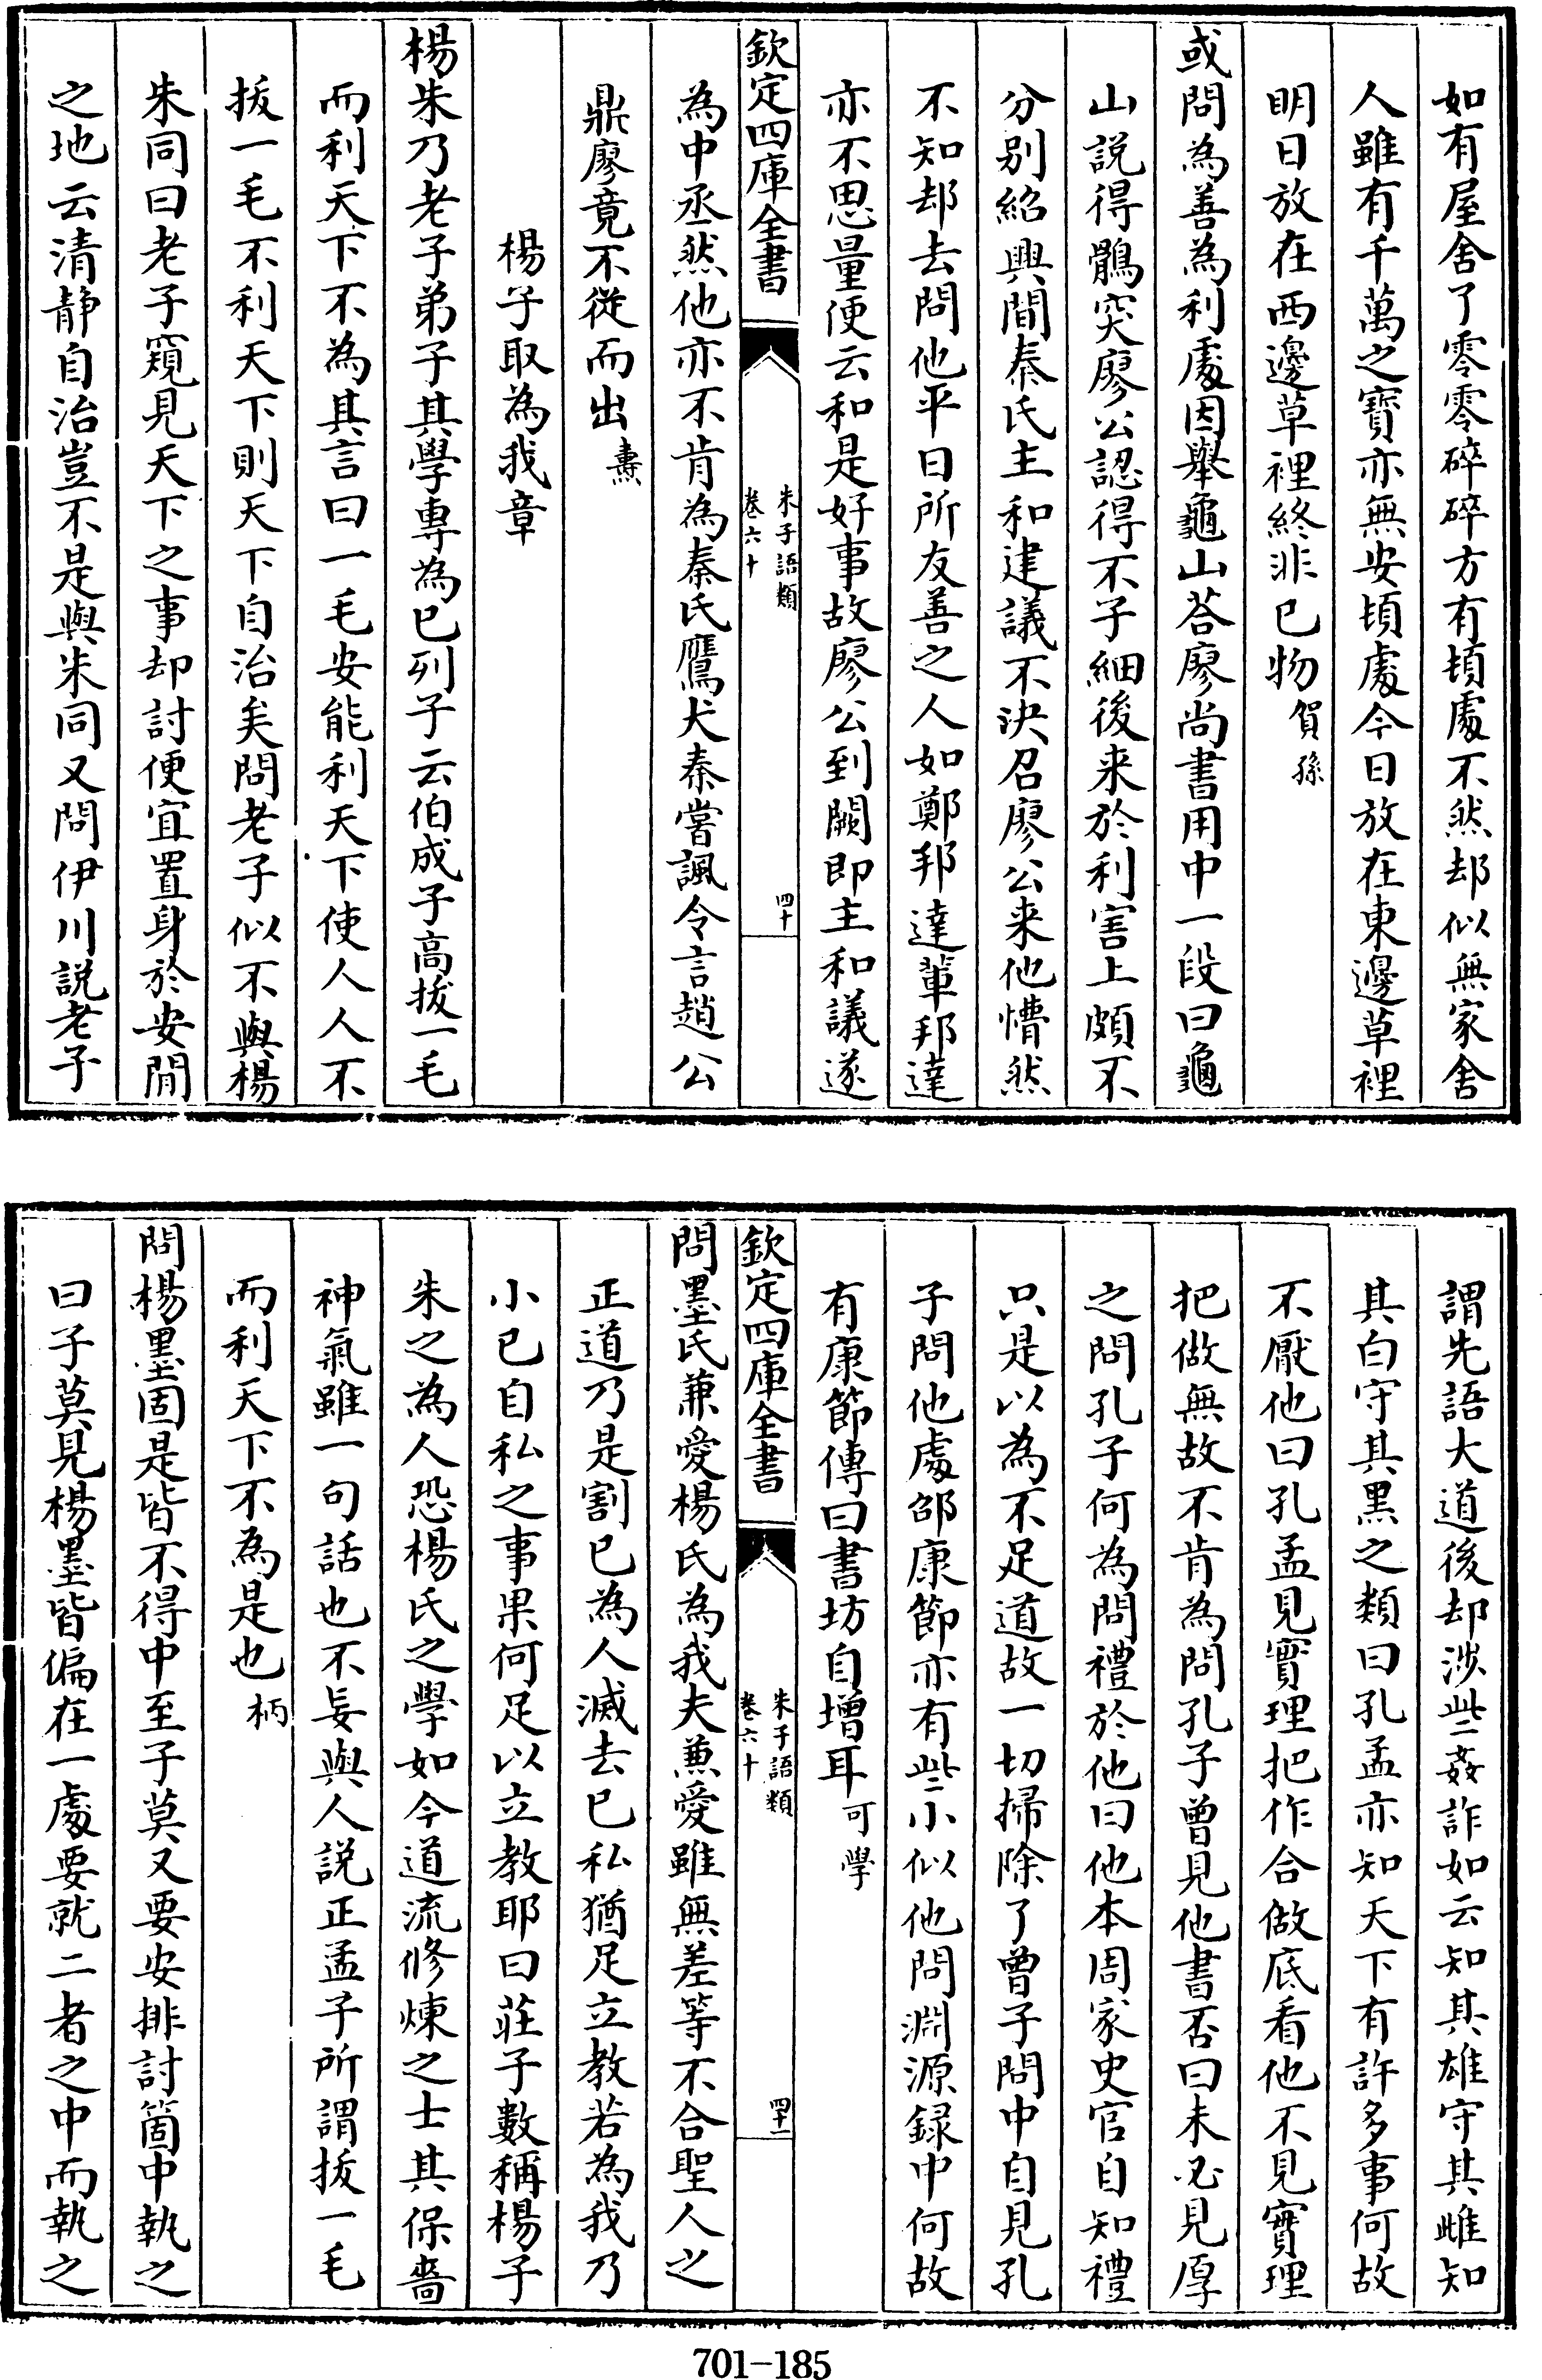 如有屋舍了零零碎碎方有頓處不然却似無家舍
人雖有千萬之寶亦無安頓處今日放在東邊草裡
明日放在西邊草裡終非已物賀孫
或問為善為利處因舉龜山荅廖尚書用中一段曰龜
山說得鶻突廖公認得不子細後来於利害上頗不
分别紹興間秦氏主和建議不決召廖公来他懵然
不知却去問他平日所友善之人如鄭邦達輩邦達
亦不思量便云和是好事故廖公到闕即主和議遂
欽定四庫全書
朱子語類
卷六十
四十
為中丞然他亦不肯為秦氏鷹犬秦嘗諷令言趙公
鼎廖竟不從而出燾
楊子取為我章
楊朱乃老子弟子其學專為已列子云伯成子高拔一毛
而利天下不為其言曰一毛安能利天下使人人不
拔一毛不利天下則天下自治矣問老子似不與楊
朱同曰老子窺見天下之事却討便宜置身於安閒
之地云清靜自治豈不是與朱同又問伊川説老子
謂先語大道後却涉些姦詐如云知其雄守其雌知
其白守其黑之類曰孔孟亦知天下有許多事何故
不厭他曰孔孟見實理把作合做底看他不見實理
把做無故不肯為問孔子曾見他書否曰未必見厚
之問孔子何為問禮於他曰他本周家史官自知禮
只是以為不足道故一切掃除了曾子問中自見孔
子問他處邵康節亦有些小似他問淵源録中何故
有康節傳曰書坊自增耳可學
欽定四庫全書
朱子語類
卷六十
四十一
問墨氏兼愛楊氏為我夫兼愛雖無差等不合聖人之
正道乃是割已為人滅去已私猶足立教若為我乃
小已自私之事果何足以立教耶曰莊子數稱楊子
朱之為人恐楊氏之學如今道流修煉之士其保嗇
神氣雖一句話也不妄與人説正孟子所謂拔一毛
而利天下不為是也柄
問楊墨固是皆不得中至子莫又要安排討箇中執之
曰子莫見楊墨皆偏在一處要就二者之中而執之
701-185